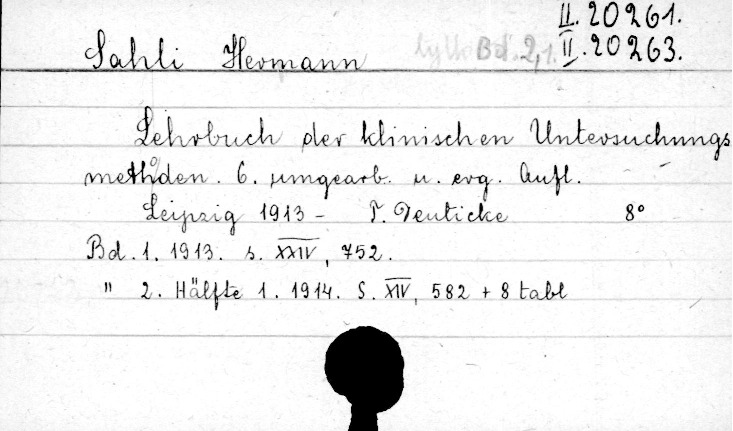 II. 20261.
Sahli Hermann tylko Bd. 2,1. II. 20263.
Lehrbuch der klinischen Untersuchungs
methoden. 6. umgearb. u. erg. Aufl.
Leipzig 1913 - F. Deuticke 8°
Bd. 1. 1913. s. XXIV, 752.
" 2. Hälfte 1. 1914. S. XIV, 582 + 8 tabl